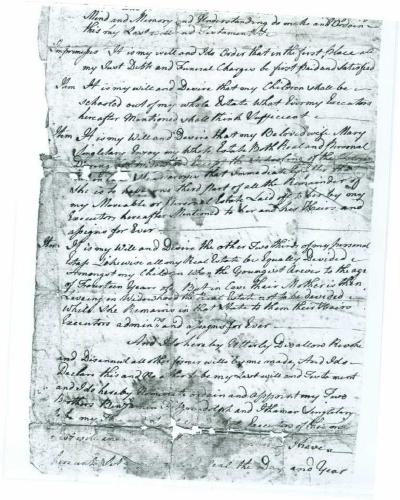 Mind and Memory and Understanding do make and Ordain
this my Last will and Testament
Imprimis It is my will and I do Order that in the first Place all
my Just Debts and Funeral Charges be first Paid and Satisfied
Itim It is my Will and Desire that my Children shall be
schooled out of my whole Estate What Ever my Executors
hereafter Mentioned shall think Suffecient
Itim It is my Will and Desire that my Beloved wife Mary
Singletary Enjoy my whole Estate Both Real and personal
During
she is to have one third part of all the Remainder of
my Moveable or personal Estate Laid of to her by my
Executors hereafter Mentioned to her and her Heirs and
assigns for Ever
Itim It is my Will and Desire the other Two thirds of my personal
Estate Likewise all my Real Estate be Equally Devided
Amongst my Children When the Youngest Arives to the age
of Fourteen Years of But in Case their Mother is then
Leveing in Widowhood the Real Estate not to be devided
While She Remains in that State to them their Heirs
Executors admin and assigns for Ever
And I do hereby Utterly Disallow Revoke
and Disannul all other former wills by me made, And I do
Declare this and No other to be my Last will and Testament
and I do hereby ordain and appoint my Two
Brothers Benjamin and Ithamar Singletary
to be my Executors of this my
Last will and I have
hereunto Set Seal the Day and Year